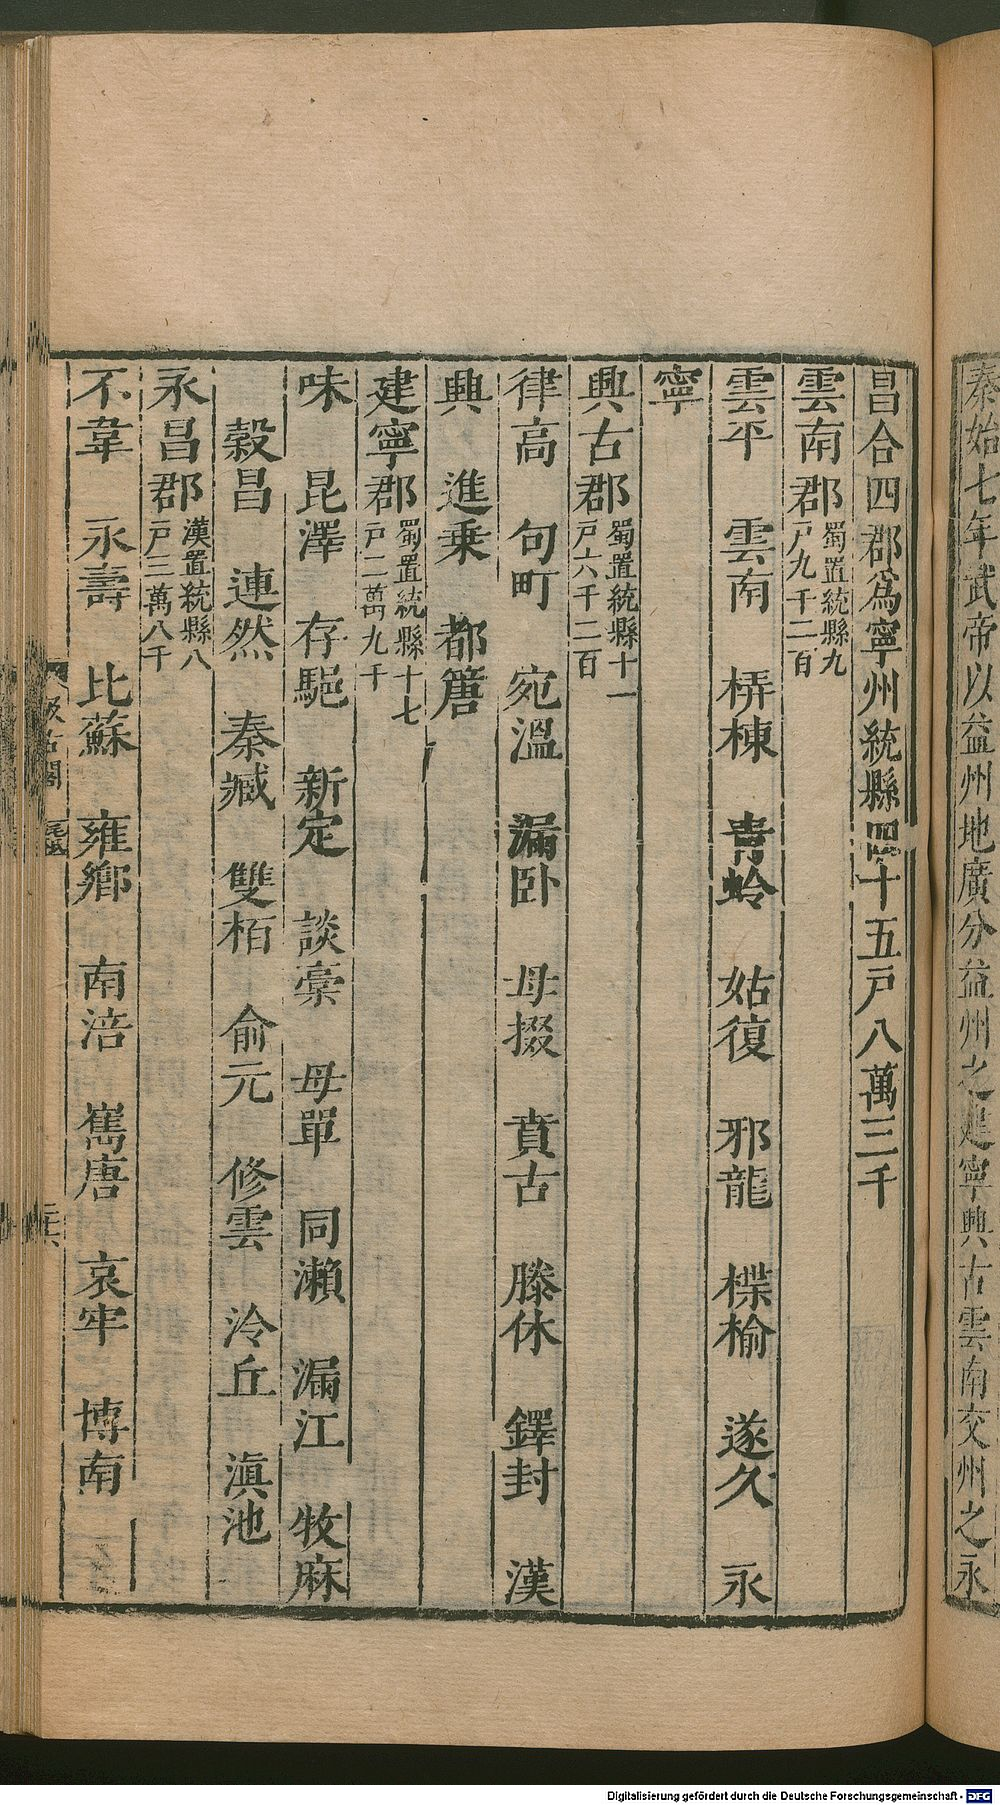 泰始七年武帝以益州地廣分益州之建寧興古雲南交州之永
昌合四郡爲寧州統縣四十五戸八萬三千
雲南郡蜀置統縣九戸九千二百
雲平 雲南 梇棟 青蛉 姑復 邪龍 楪榆 遂久 永
寧
興古郡蜀置統縣十一戸六千二百
律高 句町 宛溫 漏卧 母掇 賁古 滕休 鐔封 漢
興 進乗 都篖
建寧郡蜀置統縣十七戸二萬九千
味 昆澤 存䣕 新定 談槀 母單 同瀨 漏江 牧麻
穀昌 連然 秦臧 雙栢 俞元 修雲 泠丘 滇池
永昌郡漢置統縣八戸三萬八千
不韋 永壽 比蘇 雍鄉 南涪 嶲唐 哀牢 博南
汲古閣
Digitalisierung gefördert durch die Deutsche Forschungsgemeinschaft - DFG